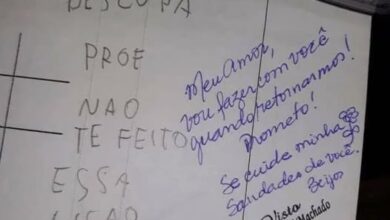 DESCUPA
PROE
NAO
TE FEITO
ESSA
Meu Amor,
vou fazer com você
quando retornarmos!
Prometo!
Se cuide minha
Saudades de você.
Beijos
Vista
Machado